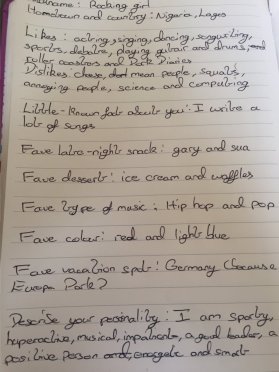 name: Rocking girl
Hometown and country: Nigeria, Lagos
Likes: acting, singing, dancing, songwriting,
sports, debates, playing guitar and drums, and
roller coasters and Dork Diaries
Dislikes: cheese, mean people, squats,
annoying people, science and computing
Little-known fact about you: I write a
lot of songs
Fave late-night snack: gary and sua
Fave dessert: ice cream and waffles
Fave type of music: Hip hop and pop
Fave colour: red and light blue
Fave vacation spot: Germany (because
Europa Park?
Describe your personality: I am sporty,
hyperactive, musical, impatient, a good leader, a
positive person energetic and smart